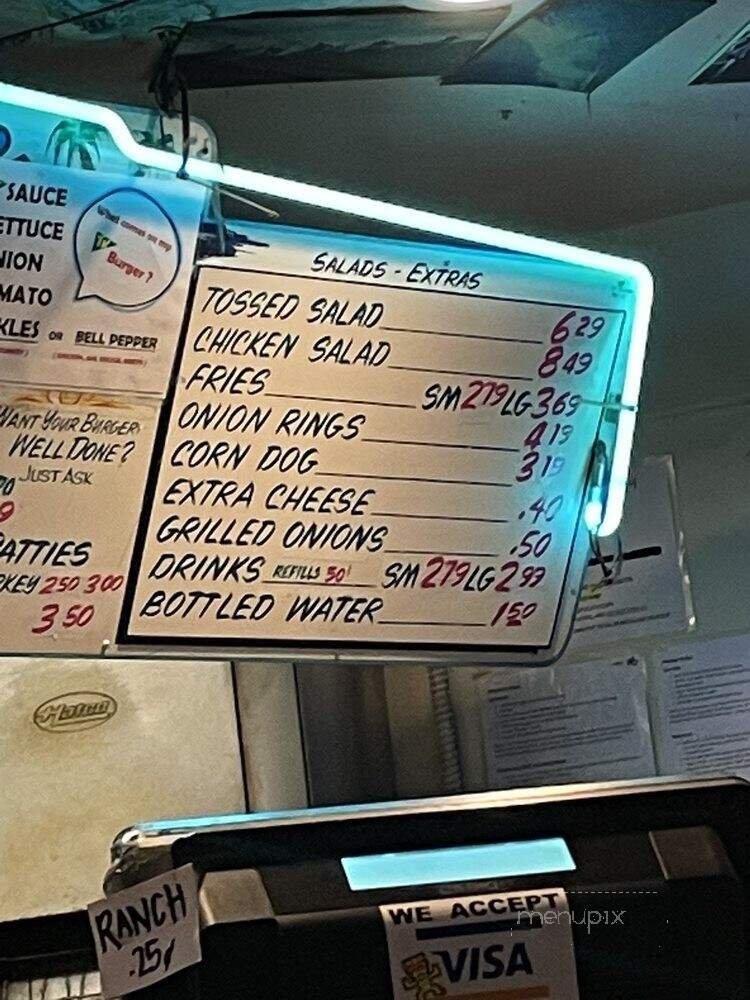 SAUCE
ETTUCE
NION
MATO
KLES OR BELL PEPPER
What comes on my
Burger?
WANT YOUR BURGER
WELL DONE?
JUST ASK
ATTIES
KEY 250 300
350
SALADS - EXTRAS
TOSSED SALAD 629
CHICKEN SALAD 849
FRIES SM 279 LG 369
ONION RINGS 419
CORN DOG 319
EXTRA CHEESE .40
GRILLED ONIONS .50
DRINKS REFILLS 50¢ SM 279 LG 299
BOTTLED WATER 150
Hatco
RANCH
.25¢
WE ACCEPT
VISA
menupix